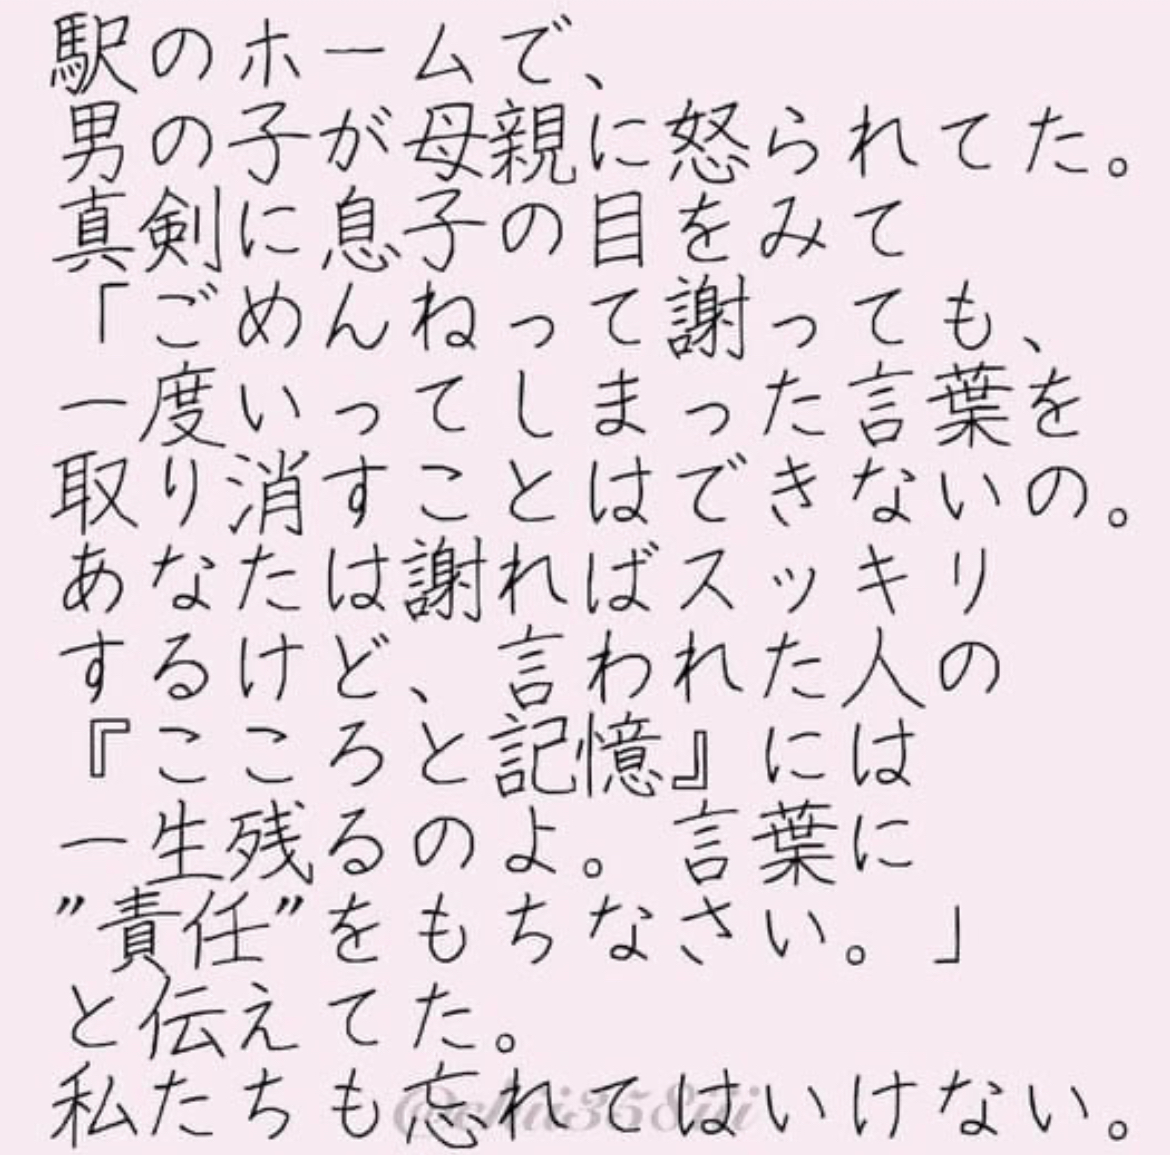 駅のホームで、
男の子が母親に怒られてた。
真剣に息子の目をみて
「ごめんねって謝っても、
一度いってしまった言葉を
取り消すことはできないの。
あなたは謝ればスッキリ
するけど、言われた人の
『こころと記憶』には
一生残るのよ。言葉に
”責任”をもちなさい。」
と伝えてた。
私たちも忘れてはいけない。